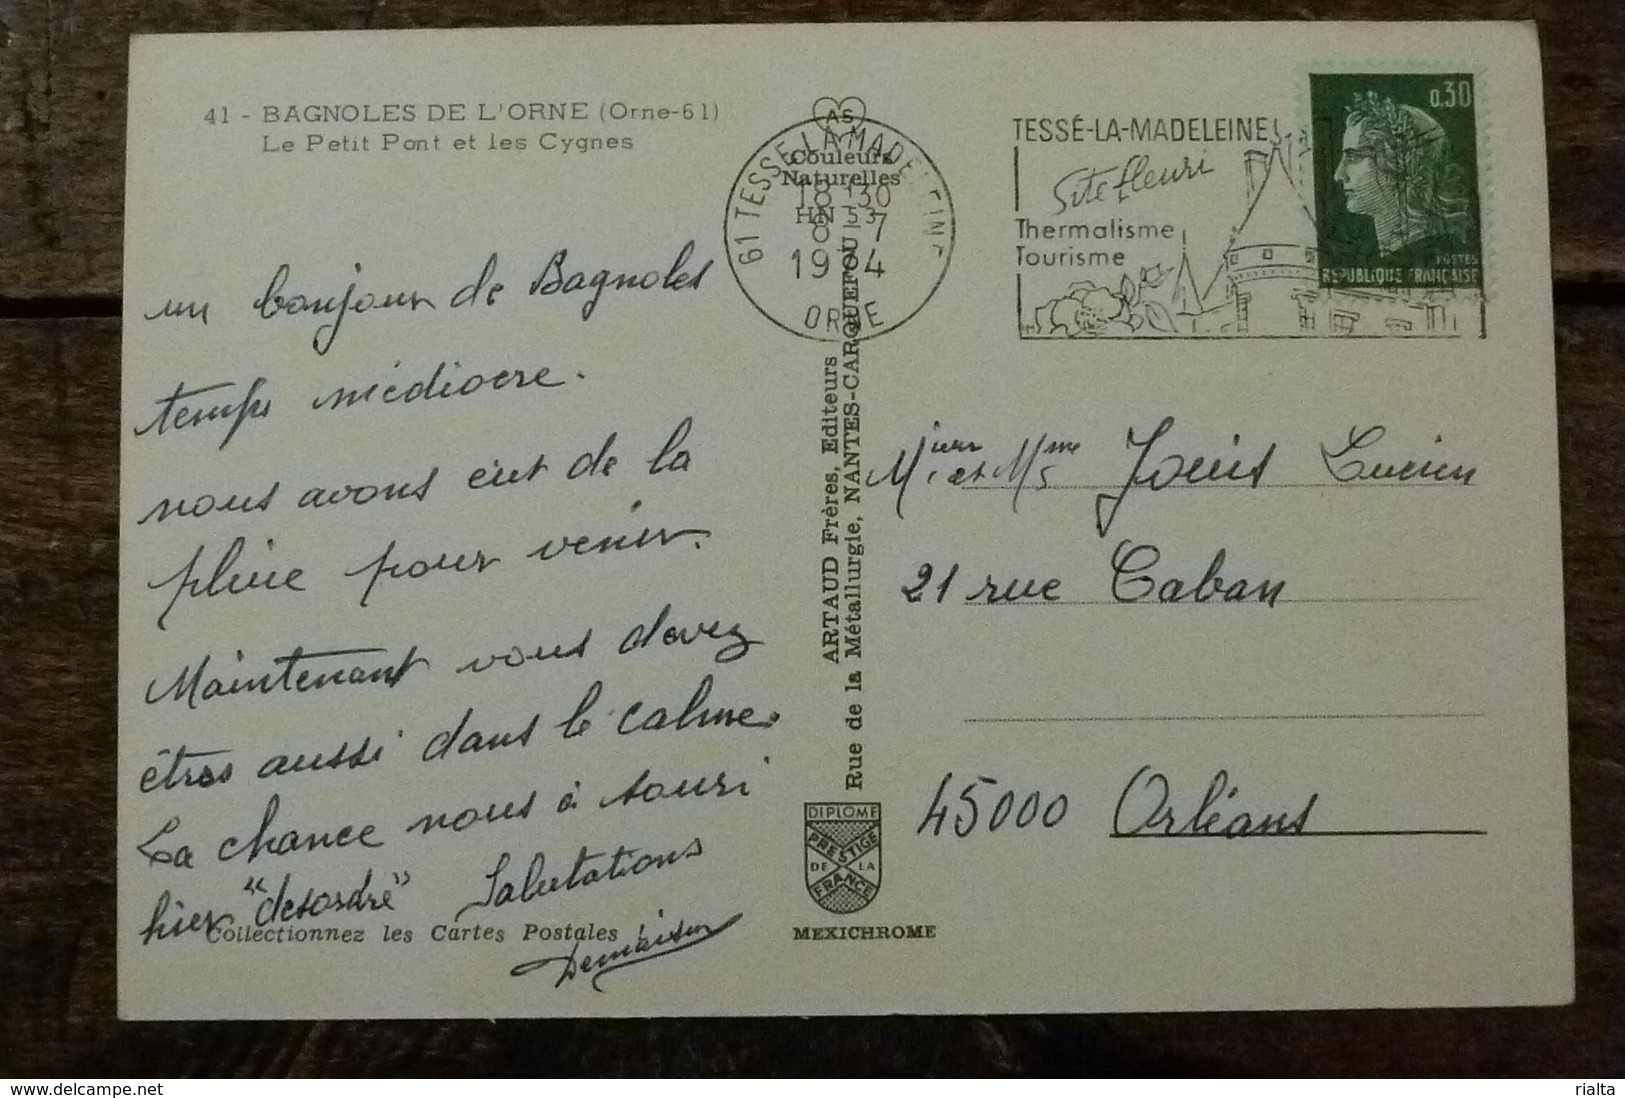 41 - BAGNOLES DE L'ORNE (Orne-61)
Le Petit Pont et les Cygnes
un bonjour de Bagnoles
temps médiocre.
nous avons eut de la
pluie pour venir.
Maintenant vous devez
êtres aussi dans le calme.
La chance nous à souri
hier "desordre" Salutations
Demaison
Collectionnez les Cartes Postales !
AS
Couleurs
Naturelles
HN 53
61 TESSE-LA-MADELEINE
18 30
8 - 7
1974
ORNE
ARTAUD Frères, Editeurs
Rue de la Métallurgie, NANTES-CARQUEFOU
DIPLOME
PRESTIGE
DE LA
FRANCE
MEXICHROME
TESSÉ-LA-MADELEINE
Site fleuri
Thermalisme
Tourisme
0,30
POSTES
REPUBLIQUE FRANÇAISE
Lucien
21 rue Caban
45000 Orléans
www.delcampe.net
rialta